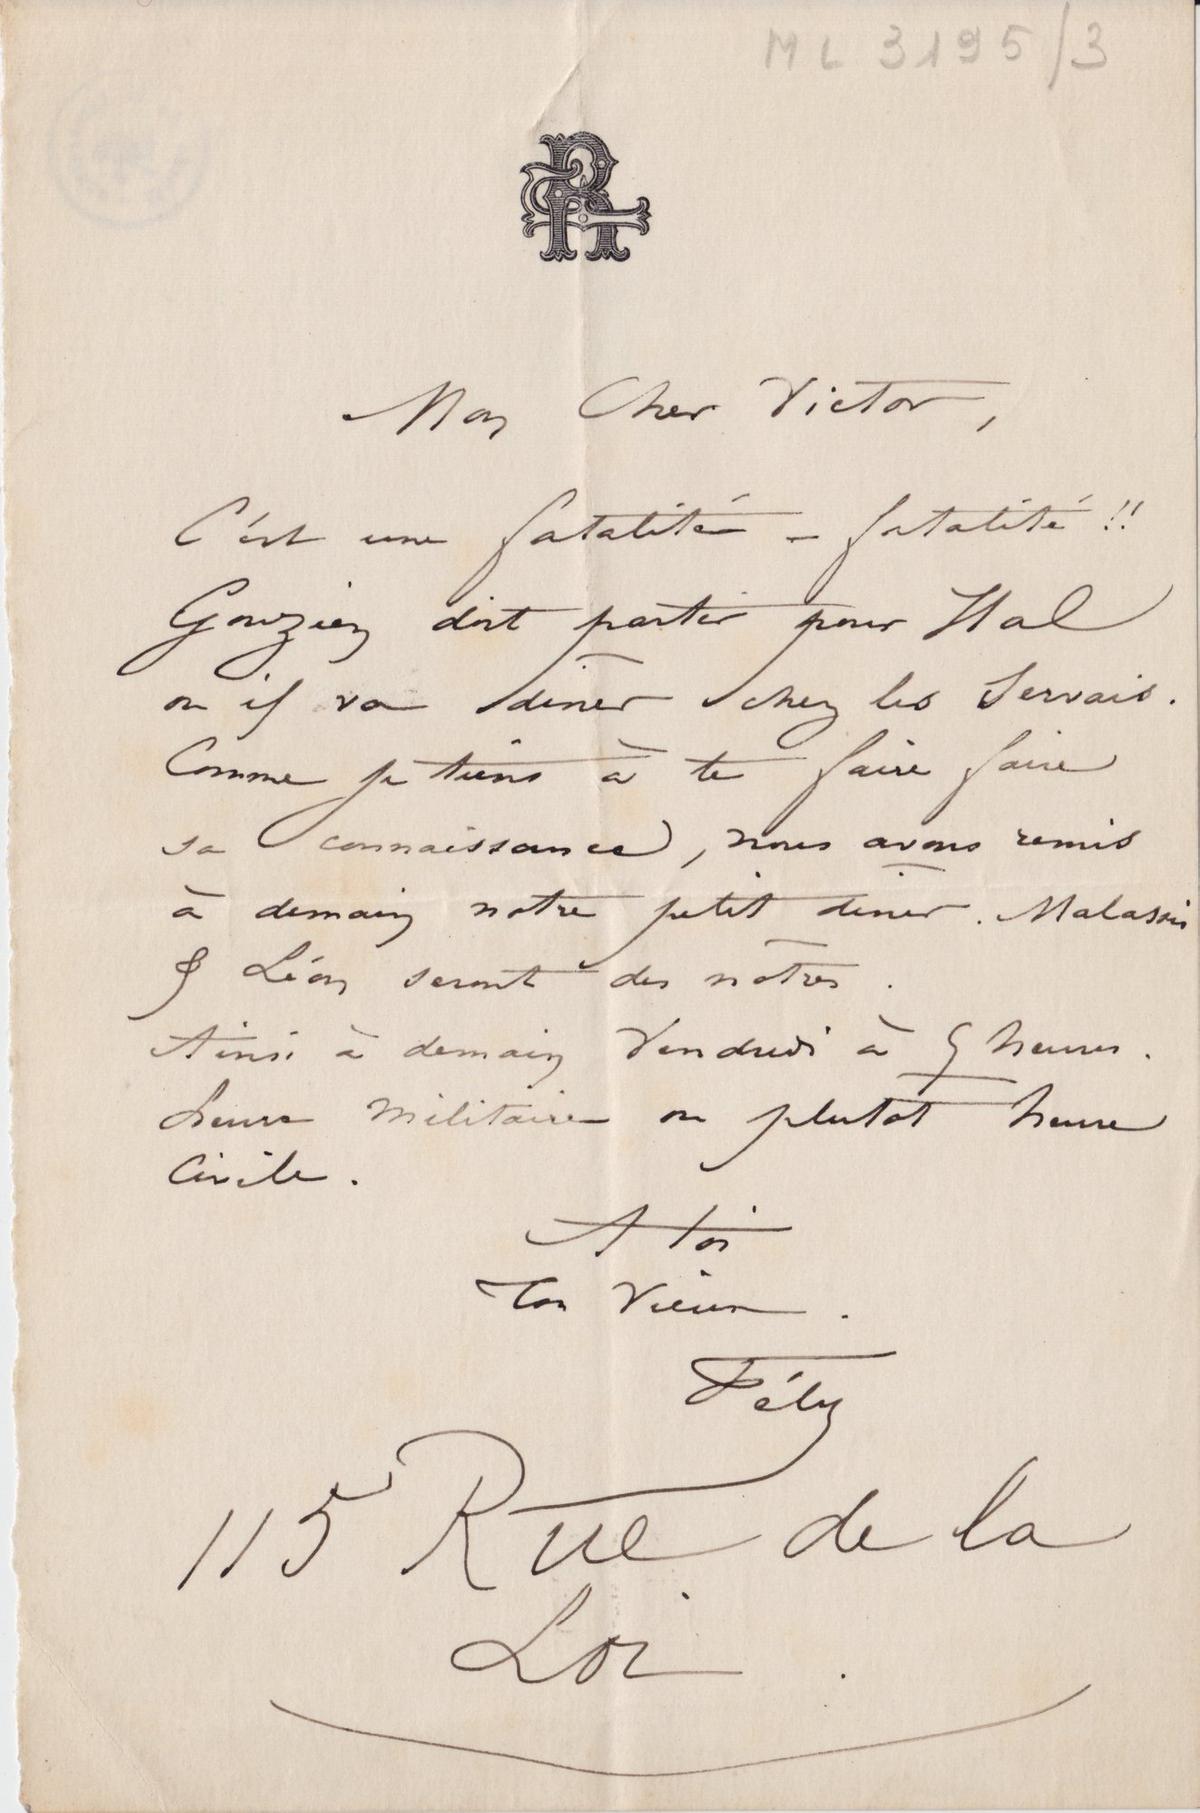 ML 3195/3
Mon Cher Victor,
C'est une fatalité – fatalité !!
Gouzien doit partir pour Hal
ou il va dîner chez les Servais.
Comme je tiens à te faire faire
sa connaissance, nous avons remis
à demain notre petit diner. Malassis
& Léon seront des nôtres.
Ainsi à demain Vendredi à 5 heures.
heure militaire ou plutot heure
Civile.
A toi
Ton Vieux.
Fély
115 Rue de la
Loi.